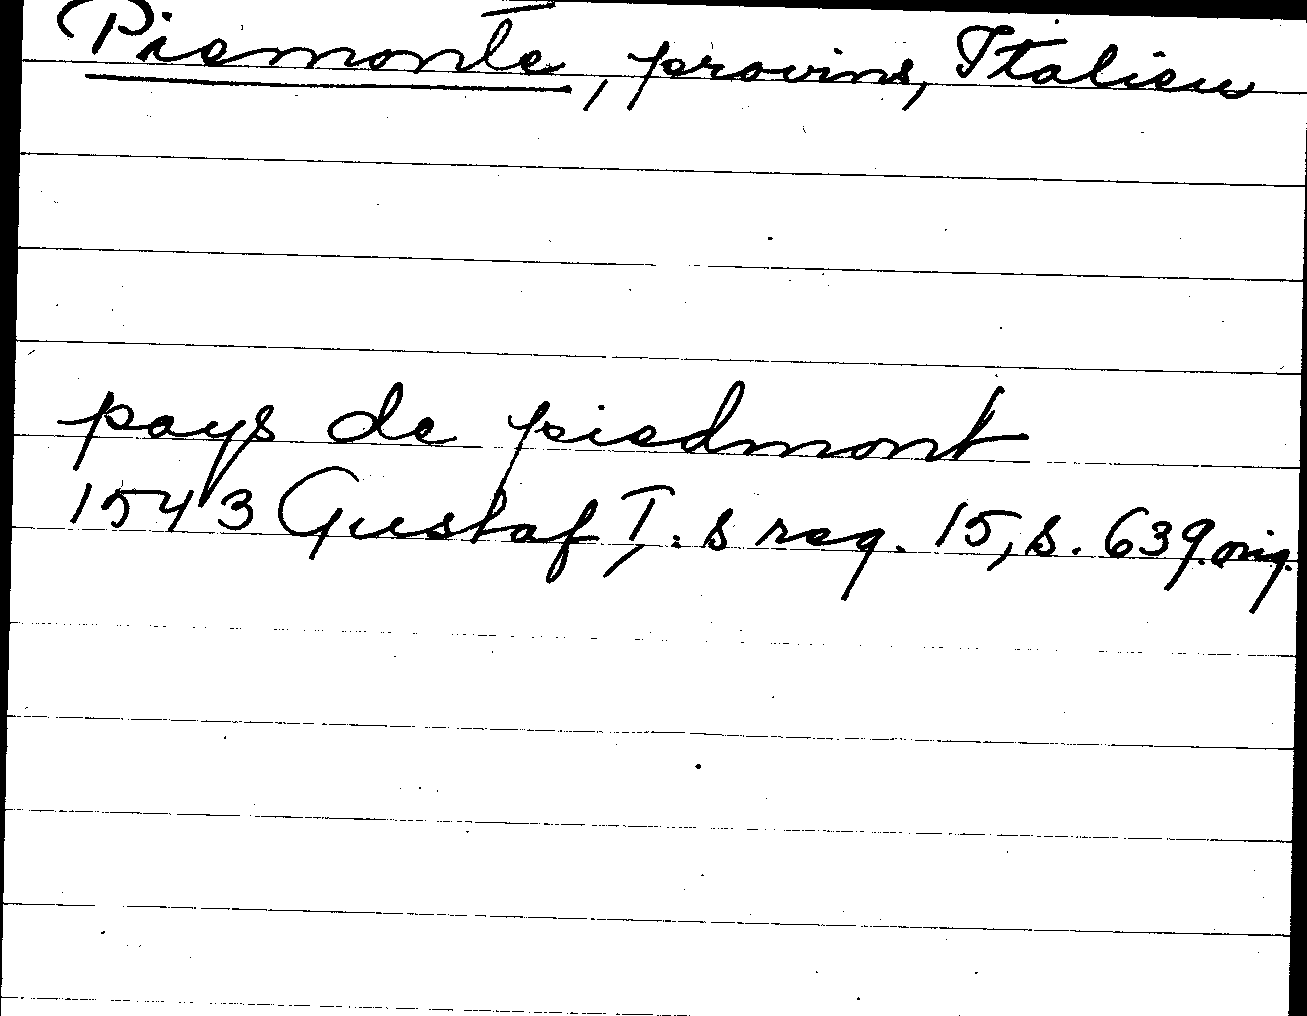 Piemonte, provins, Italien
pays de piedmont
1543 Gustaf I:s reg. 15, s. 639. orig.